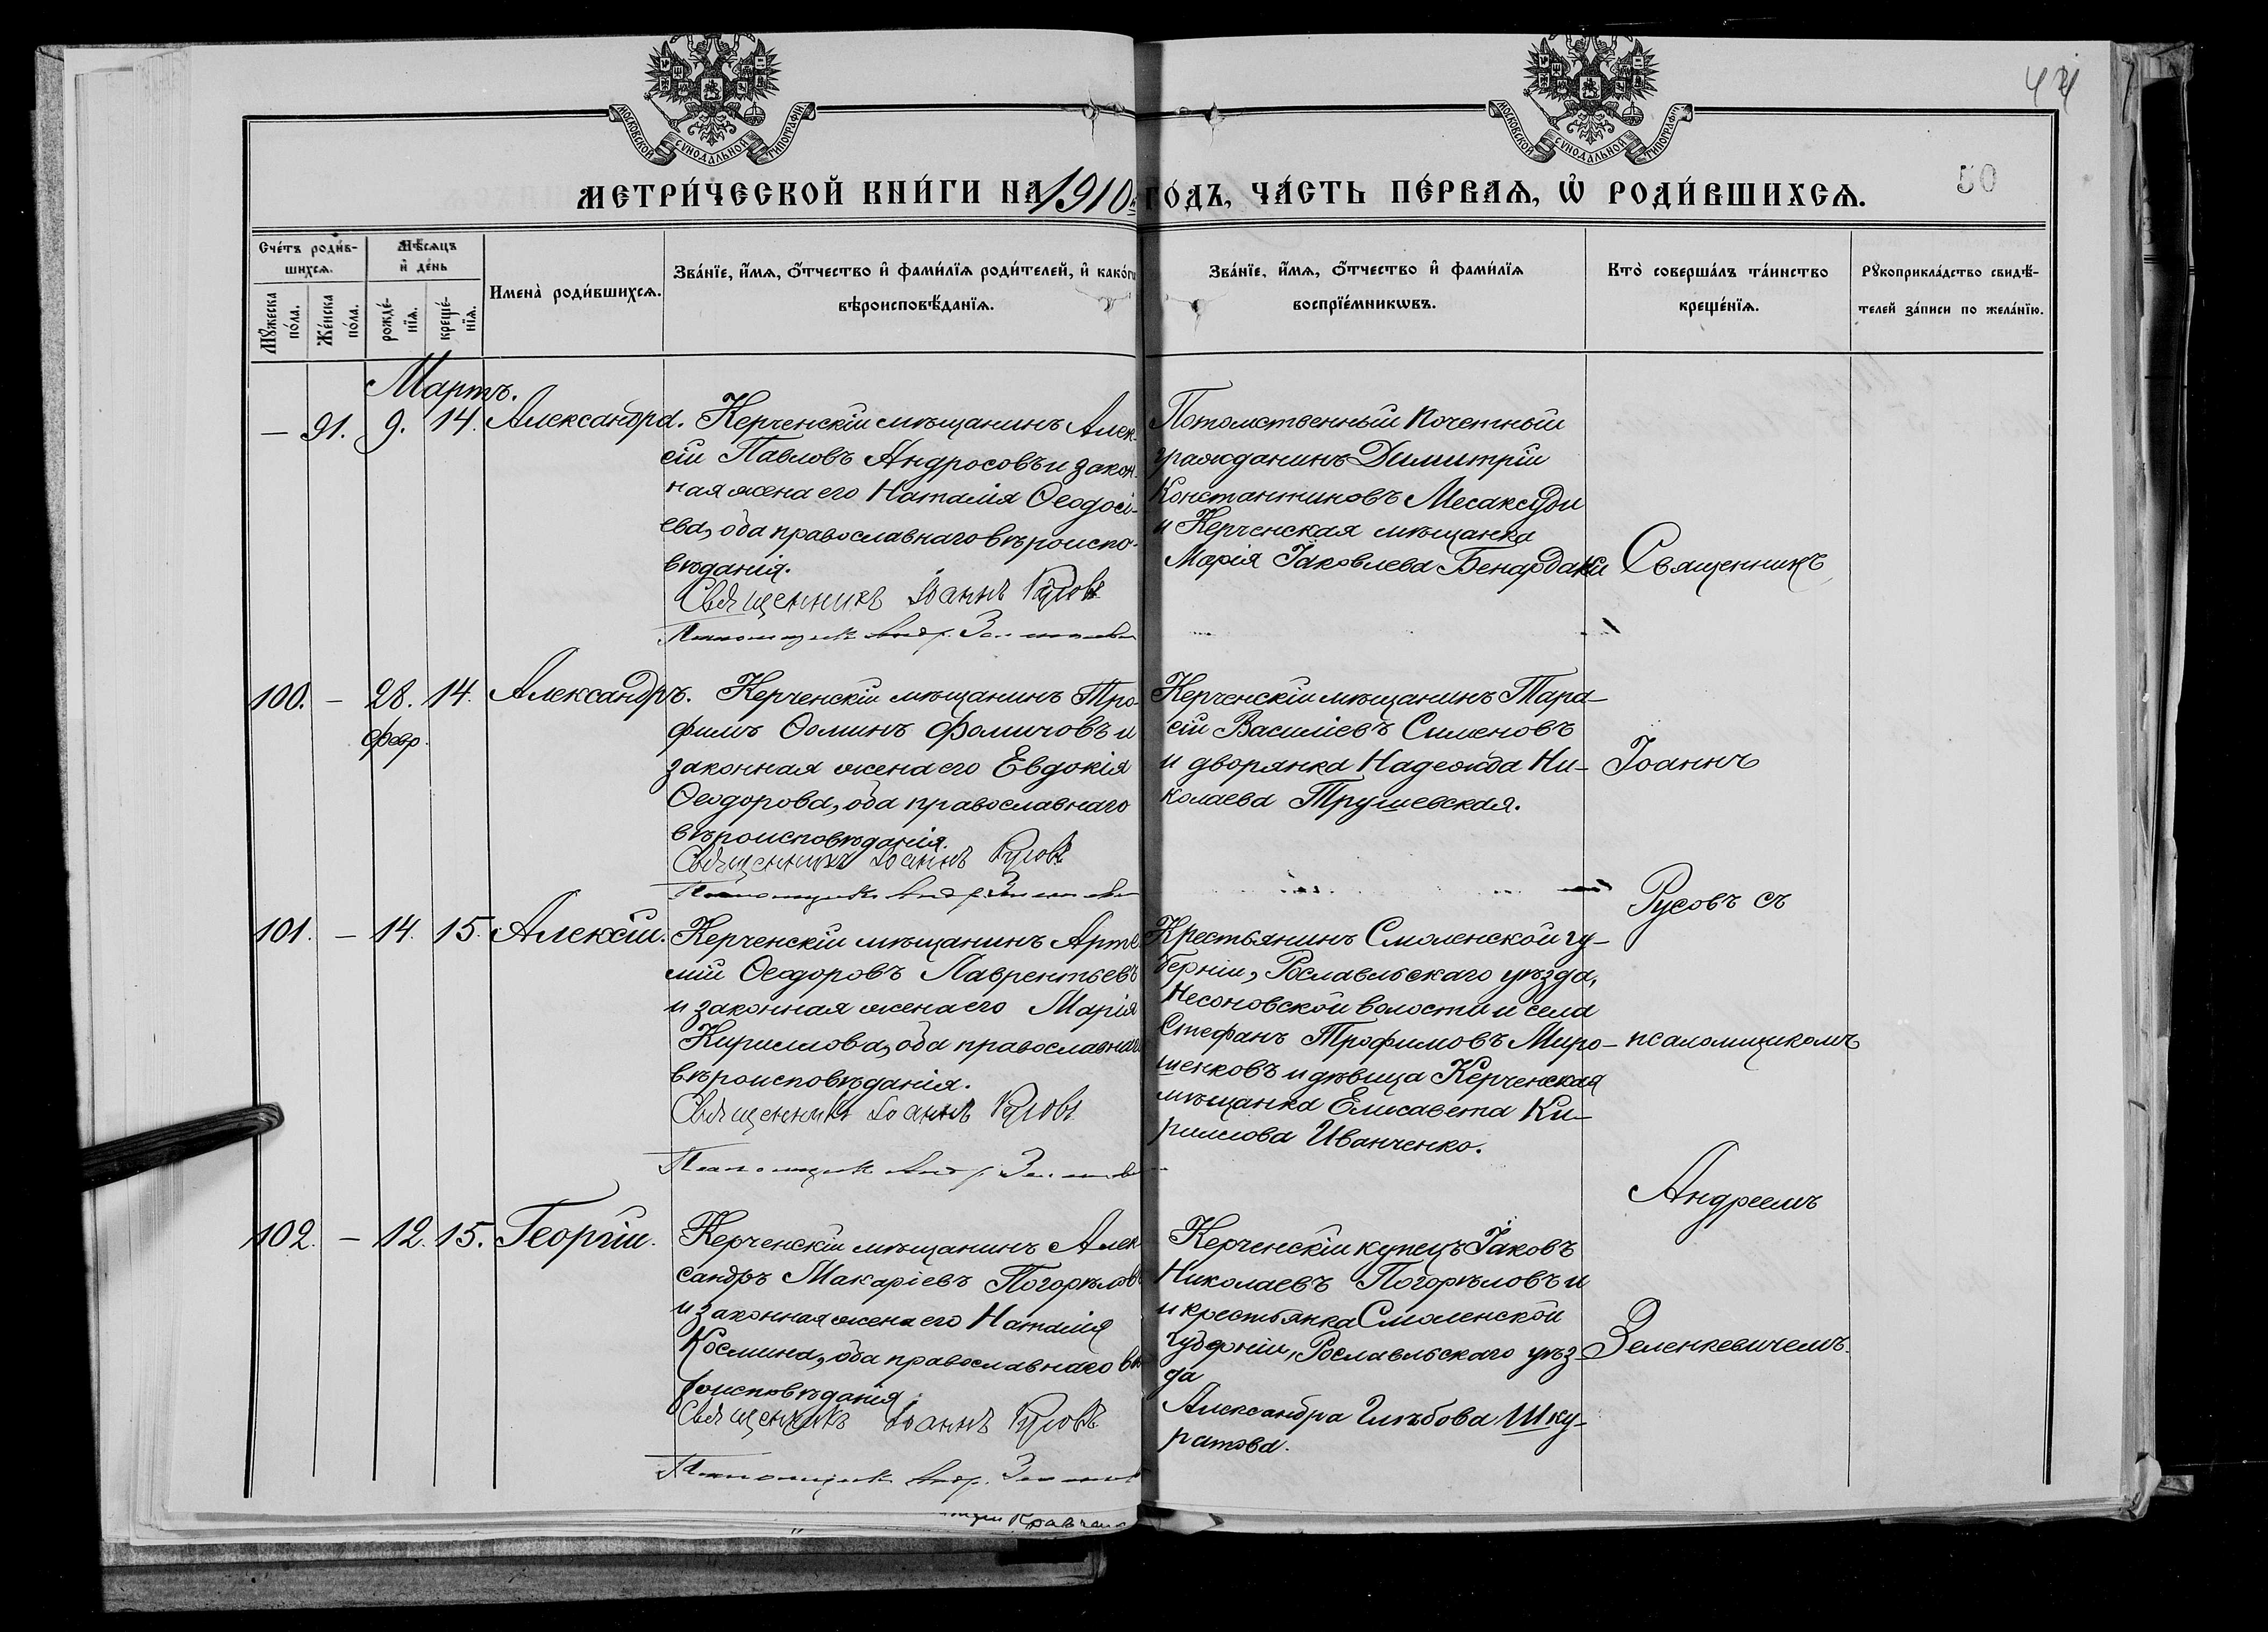 44
МОСКОВСКОЙ СѴНОДАЛЬНОЙ ТИПОГРАФІИ
МОСКОВСКОЙ СѴНОДАЛЬНОЙ ТИПОГРАФІИ
50
МЕТРИ́ЧЕСКОЙ КНИ́ГИ НА 1910 й ГО́ДЪ, ЧА́СТЬ ПЕ́РВАѦ, Ѡ҆ РОДИ́ВШИХСѦ.
Сче́тъ роди́в-
шихсѧ.
Мꙋ́жеска по́ла.
Же́нска по́ла.
Мѣ́сѧцъ
и҆ де́нь
рожде́-
нїѧ.
креще́-
нїѧ.
Имена̀ роди́вшихсѧ.
Зва́нїе, и҆́мѧ, ѻ҆́тчество и҆ фами́лїѧ роди́телей, и҆ како́гѡ
вѣроисповѣ́данїѧ.
Зва́нїе, и҆́мѧ, ѻ҆́тчество и҆ фами́лїѧ
воспрїе́мникѡвъ.
Кто̀ соверша́лъ та́инство
креще́нїѧ.
Рꙋкоприкла́дство свидѣ́-
телей за́писи по жела́нїю.
Мартъ.
— 91. 9. 14. Александра.
Керченскій мѣщанинъ Алек-
сій Павловъ Андросовъ и закон-
ная жена его Наталія Ѳеодосі-
ева, оба православнаго вѣроиспо-
вѣданія.
Священникъ Іоаннъ Русовъ
Псаломщик Андр. Зеленкевич
Потомственный почетный
гражданинъ Димитрій
Константиновъ Месаксуди
и Керченская мѣщанка
Марія Іаковлева Бенардаки
Священникъ
100. — 28. 14. Александръ.
февр.
Керченскій мѣщанинъ Тро-
фимъ Ѳоминъ Фомичовъ и
законная жена его Евдокія
Ѳеодорова, оба православнаго
вѣроисповѣданія.
Священникъ Іоаннъ Русовъ
Псаломщик Андр. Зеленкевич
Керченскій мѣщанинъ Тара-
сій Василіевъ Сименовъ
и дворянка Надежда Ни-
колаева Трушевская.
Іоаннъ
Русовъ съ
101. — 14. 15. Алексій.
Керченскій мѣщанинъ Арте-
мій Ѳеодоровъ Лаврентьевъ
и законная жена его Марія
Кириллова, оба православнаго
вѣроисповѣданія.
Священникъ Іоаннъ Русовъ
Псаломщик Андр. Зеленкевич
Крестьянинъ Смоленской гу-
берніи, Рославльскаго уѣзда,
Несоновской волости и села
Стефанъ Трофимовъ Миро-
шенковъ и дѣвица Керченская
мѣщанка Елисавета Ки-
риллова Иванченко.
псаломщикомъ
Андреемъ
102. — 12. 15. Георгій.
Керченскій мѣщанинъ Алек-
сандръ Макаріевъ Погорѣловъ
и законная жена его Наталія
Космина, оба православнаго вѣ-
роисповѣданія.
Священникъ Іоаннъ Русовъ
Псаломщик Андр. Зеленкевич
Керченскій купецъ Іаковъ
Николаевъ Погорѣловъ и
и крестьянка Смоленской
губерніи, Рославльскаго уѣз-
да
Александра Глѣбова Шку-
ратова.
Зеленкевичемъ.